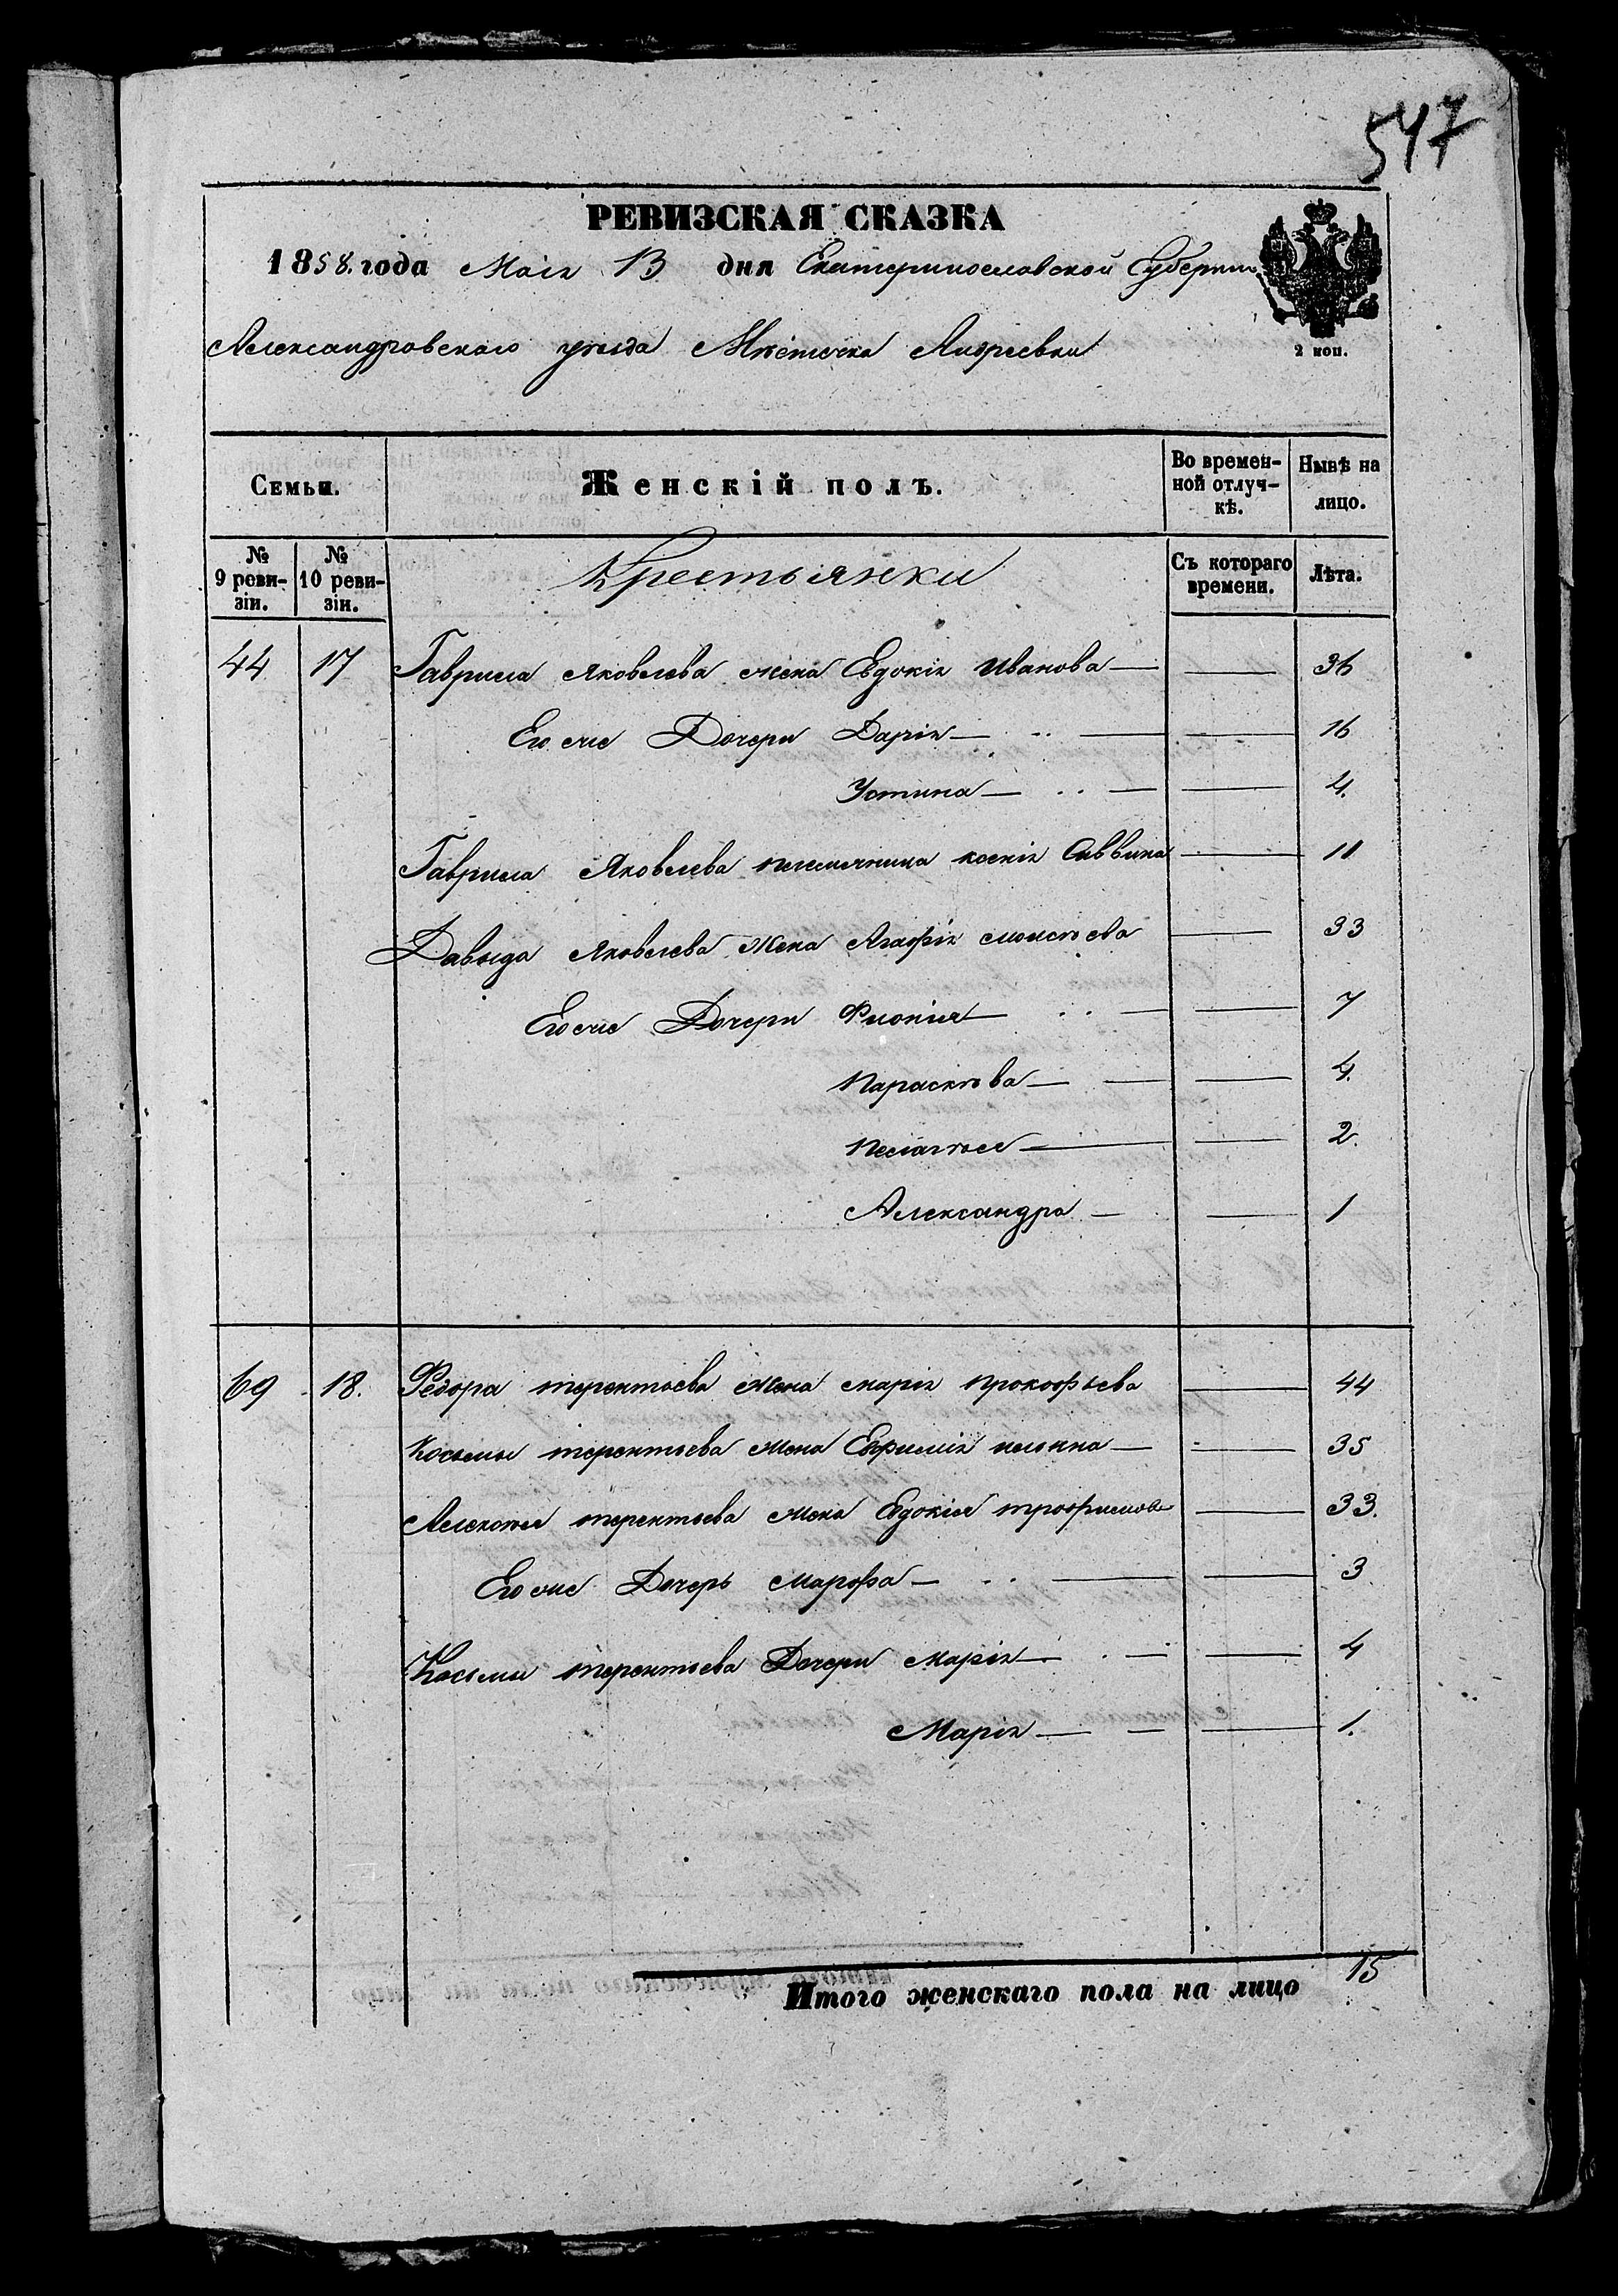 547
РЕВИЗСКАЯ СКАЗКА
1858. года Маія 13 дня Екатеринославской Губерніи
Александровскаго уѣзда Мѣстечка Андреевки
2 коп.
Семьи. Женскій полъ. Во временной отлучкѣ. Нынѣ на лицо.
№ 9 ревизіи. № 10 ревизіи. Крестьянки Съ котораго времени. Лѣта.
44 17 Гаврила Яковлева жена Евдокія Иванова — — 36
Его же Дочери Дарія — — 16
Устина — — 4.
Гаврила Яковлева племянница Ксенія Саввина — 11
Давыда Яковлева Жена Агафія Моисѣева — 33
Его же Дочери — 7
Параскѣва — — 4.
Пелагѣя — — 2.
Александра — — 1
69 18. Федора Терентьева Жена Марія Прокофьева — 44
Косьмы Терентьева Жена Евфимія — — 35
Алексѣя Терентьева Жена Евдокія Трофимова — 33.
Его же Дочерь Марфа — — 3
Косьмы Терентьева Дочери Марія — — 4
Марія — — 1.
Итого женскаго пола на лицо 15